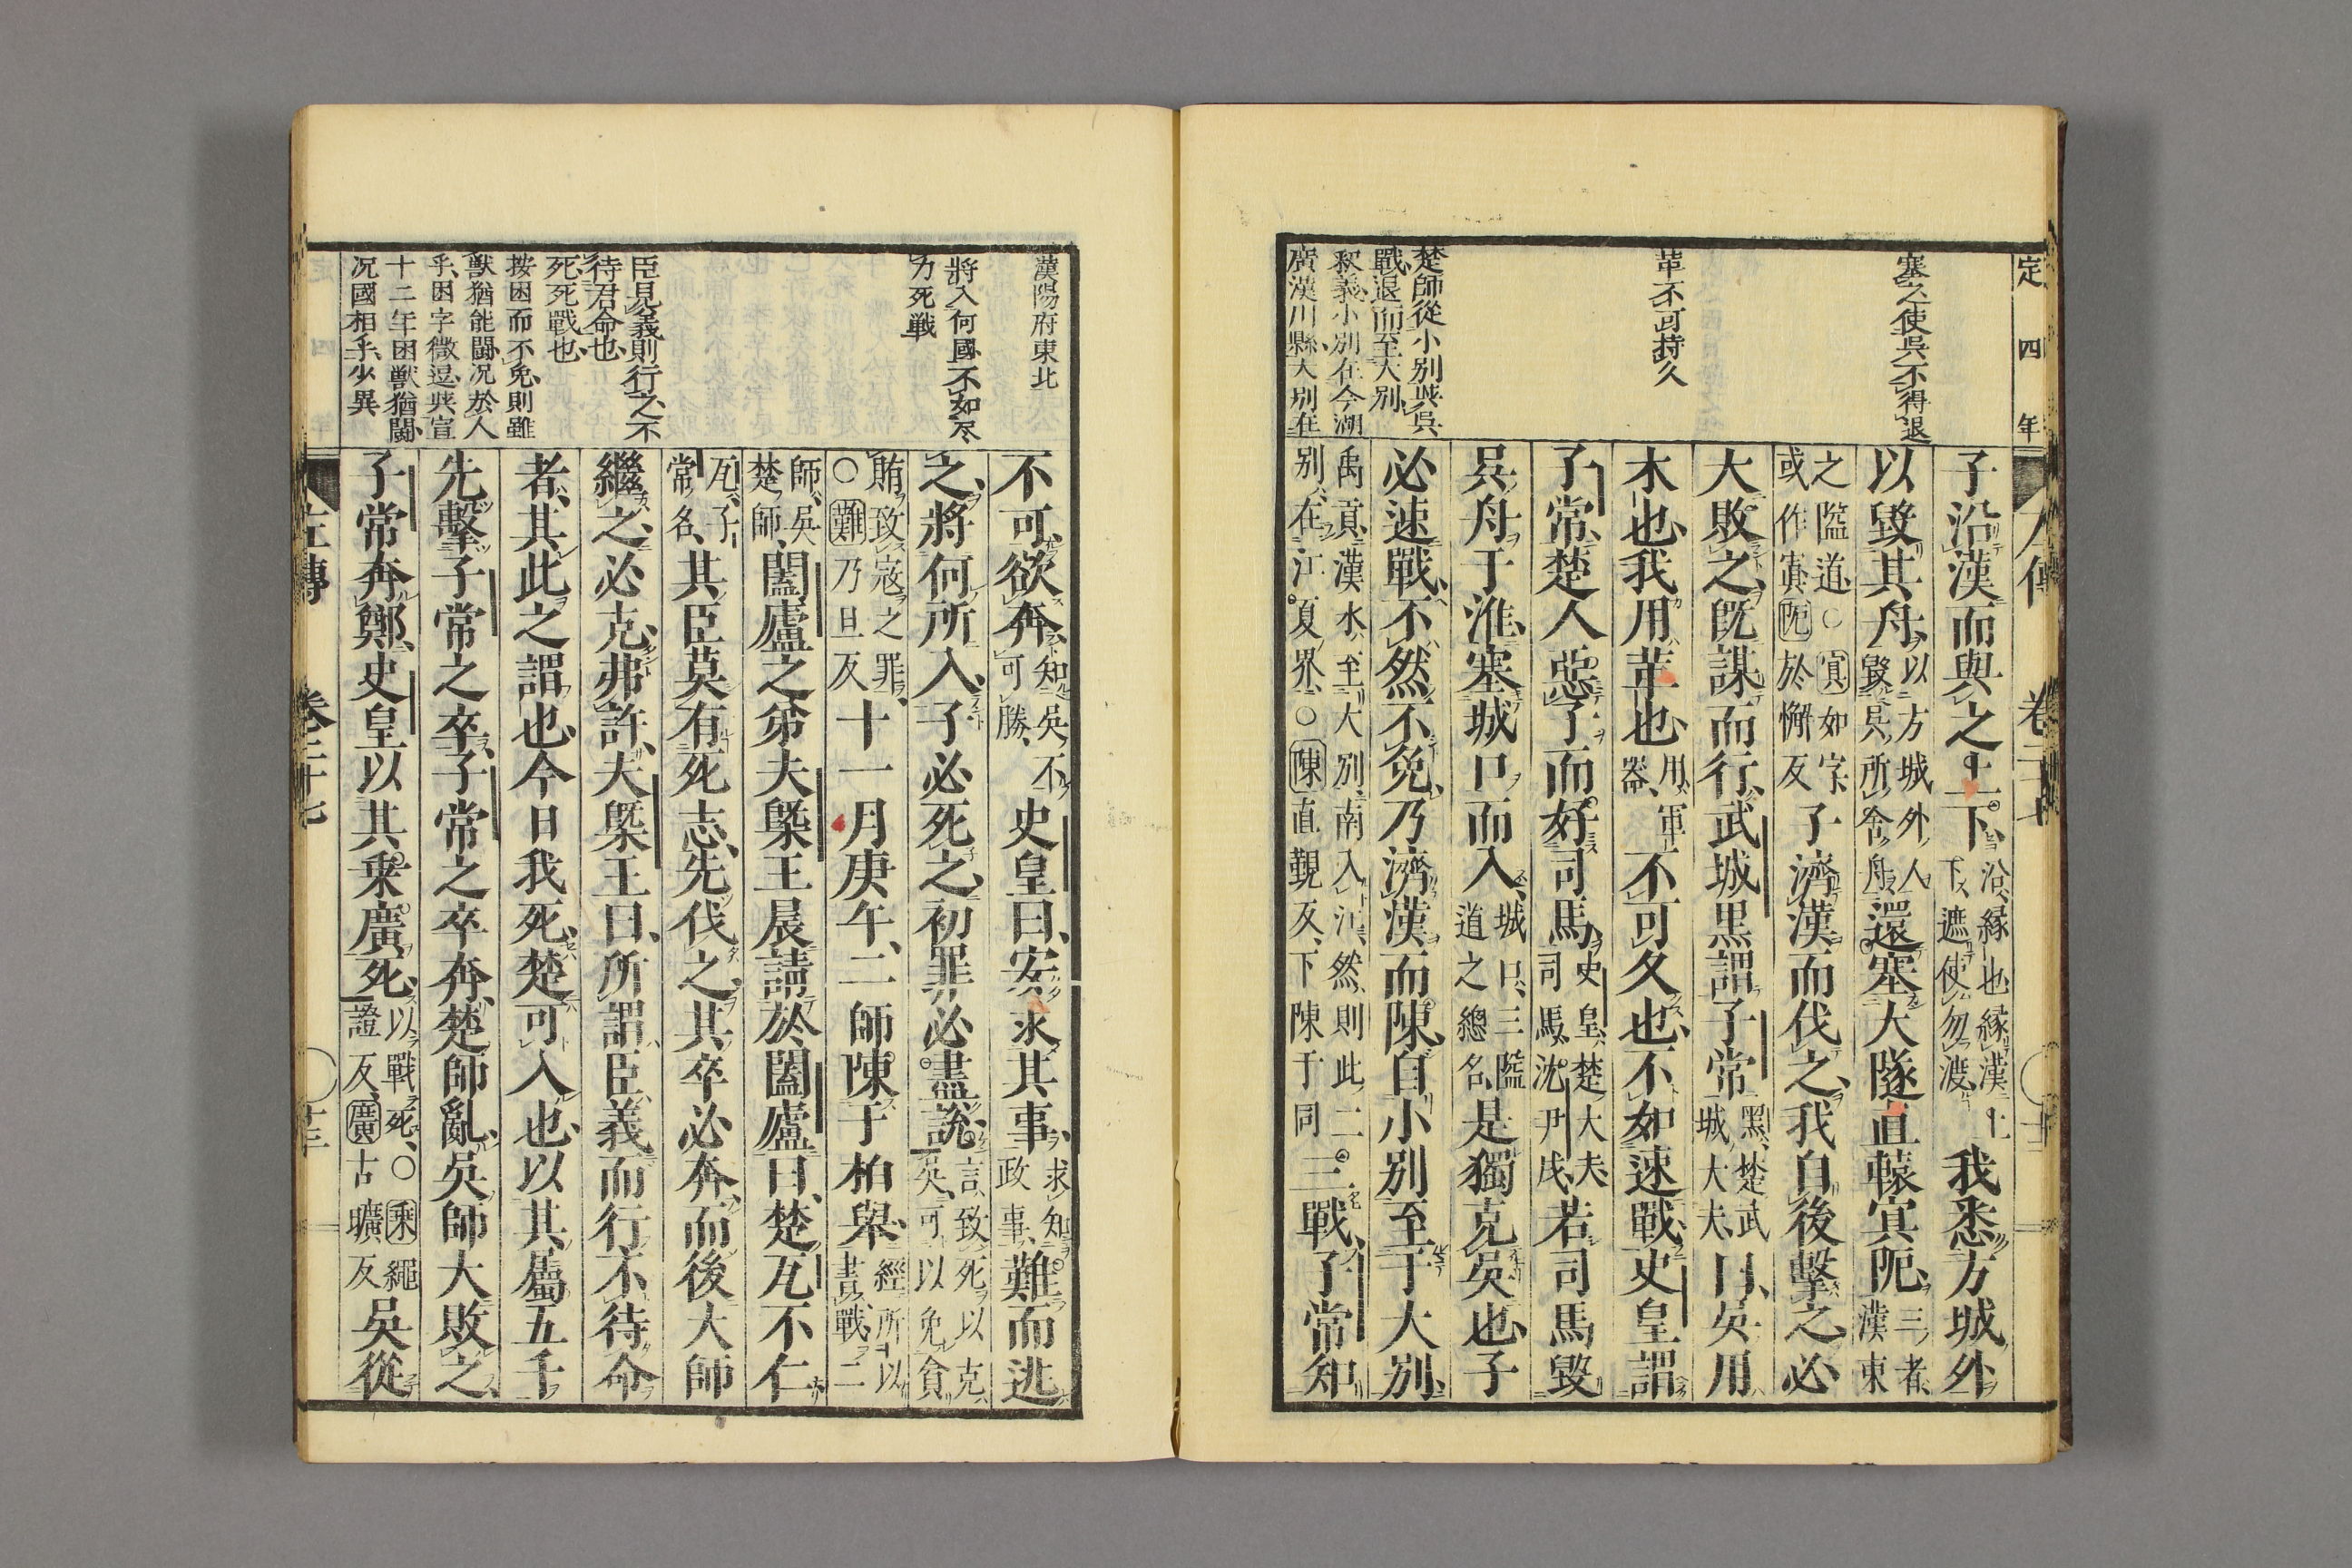 定四年
塞之使吳不得退
革不可持久
楚師從小別與吳
戰退而至大別
釈義小別在今湖
廣漢川縣大別在
子沿漢而與之上下沿緣也緣漢上下遮使勿渡我悉方城外
以毀其舟以方城外人毀吳所舍舟還塞大隧直轅冥阨三者漢東
之隘道○冥如字或作寘阨於懈反子濟漢而伐之我自後擊之必
大敗之既謀而行武城黑謂子常黑楚武城大夫曰吳用
木也我用革也用軍器不可久也不如速戰史皇謂
子常楚人惡子而好司馬史皇楚大夫司馬沈尹戌若司馬毀
吳舟于淮塞城口而入城口三隘道之總名是獨克吳也子
必速戰不然不免乃濟漢而陳自小別至于大別
禹貢漢水至大別南入江然則此二別在江夏界○陳直覲反下陳于同三戰子常知
漢陽府東北
將入何國不如尽
力死戦
臣見義則行之不
待君命也
死死戰也
按困而不免則雖
獣猶能闘况於人
乎困字微逗與宣
十二年困獣猶闘
况國相乎少異
不可欲奔知吳不可勝史皇曰安求其事求知政事難而逃
之將何所入子必死之初罪必盡說言致死以克吳可以免貪
賄致寇之罪○難乃旦反十一月庚午二師陳于柏舉經所以書戰二
師吳楚師闔廬之弟夫槩王晨請於闔廬曰楚瓦不仁
瓦子常名其臣莫有死志先伐之其卒必奔而後大師
繼之必克弗許夫槩王曰所謂臣義而行不待命
者其此之謂也今日我死楚可入也以其屬五千
先擊子常之卒子常之卒奔楚師亂吳師大敗之
子常奔鄭史皇以其乘廣死以戰死○乘繩證反廣古壙反吳從
左傳 卷二十七 十三